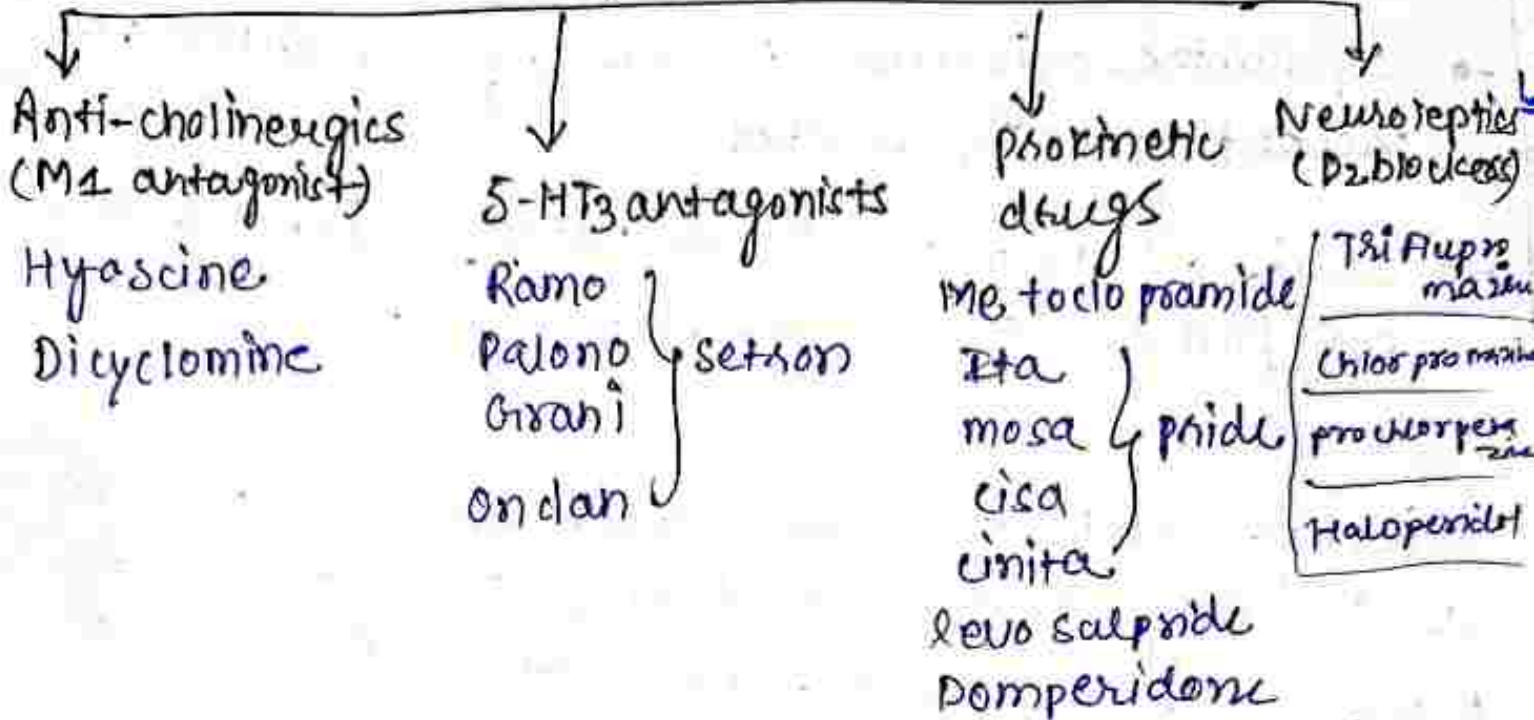 Anti-cholinergics
(M1 antagonist)
Hyoscine
Dicyclomine
5-HT3 antagonists
Ramo
Palono
Grani
Ondan
setron
prokinetic
drugs
Metoclopramide
Ita
mosa
cisa
cinita
pride
levosulpride
Domperidone
Neuroleptics
(D2 blockers)
Triflupro
mazin
Chlorpromazine
prochlorpera
zine
Haloperidol